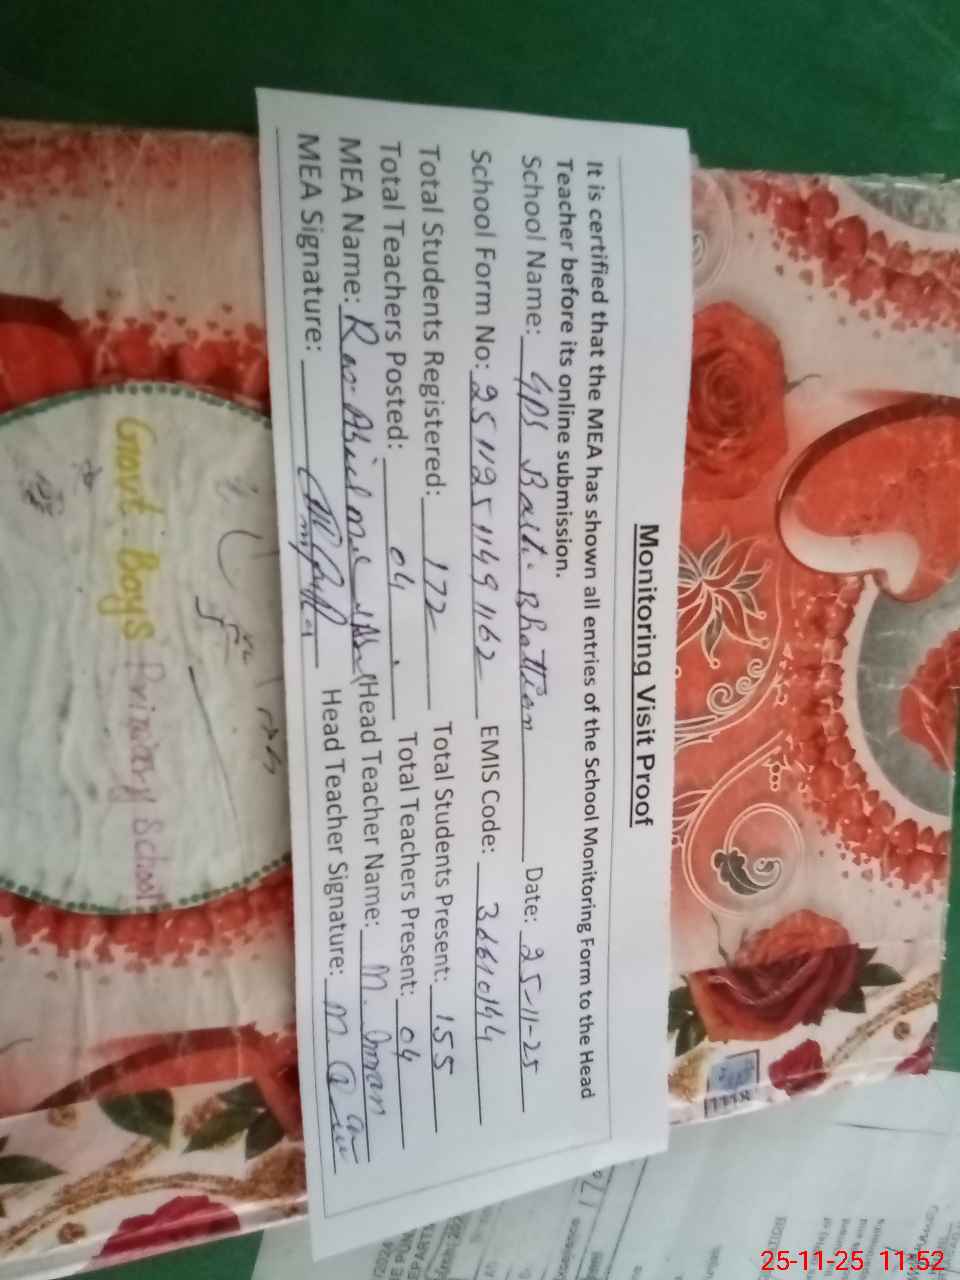 Monitoring Visit Proof
It is certified that the MEA has shown all entries of the School Monitoring Form to the Head
Teacher before its online submission.
School Name: GPS Basti Bhattian Date: 25-11-25
School Form No: 25112511491162 EMIS Code:
Total Students Registered: 172 Total Students Present: 155
Total Teachers Posted: 04 Total Teachers Present: 04
MEA Name: Head Teacher Name: M. Imran
MEA Signature: Head Teacher Signature:
Govt. Boys
Primary School
25-11-25 11:52